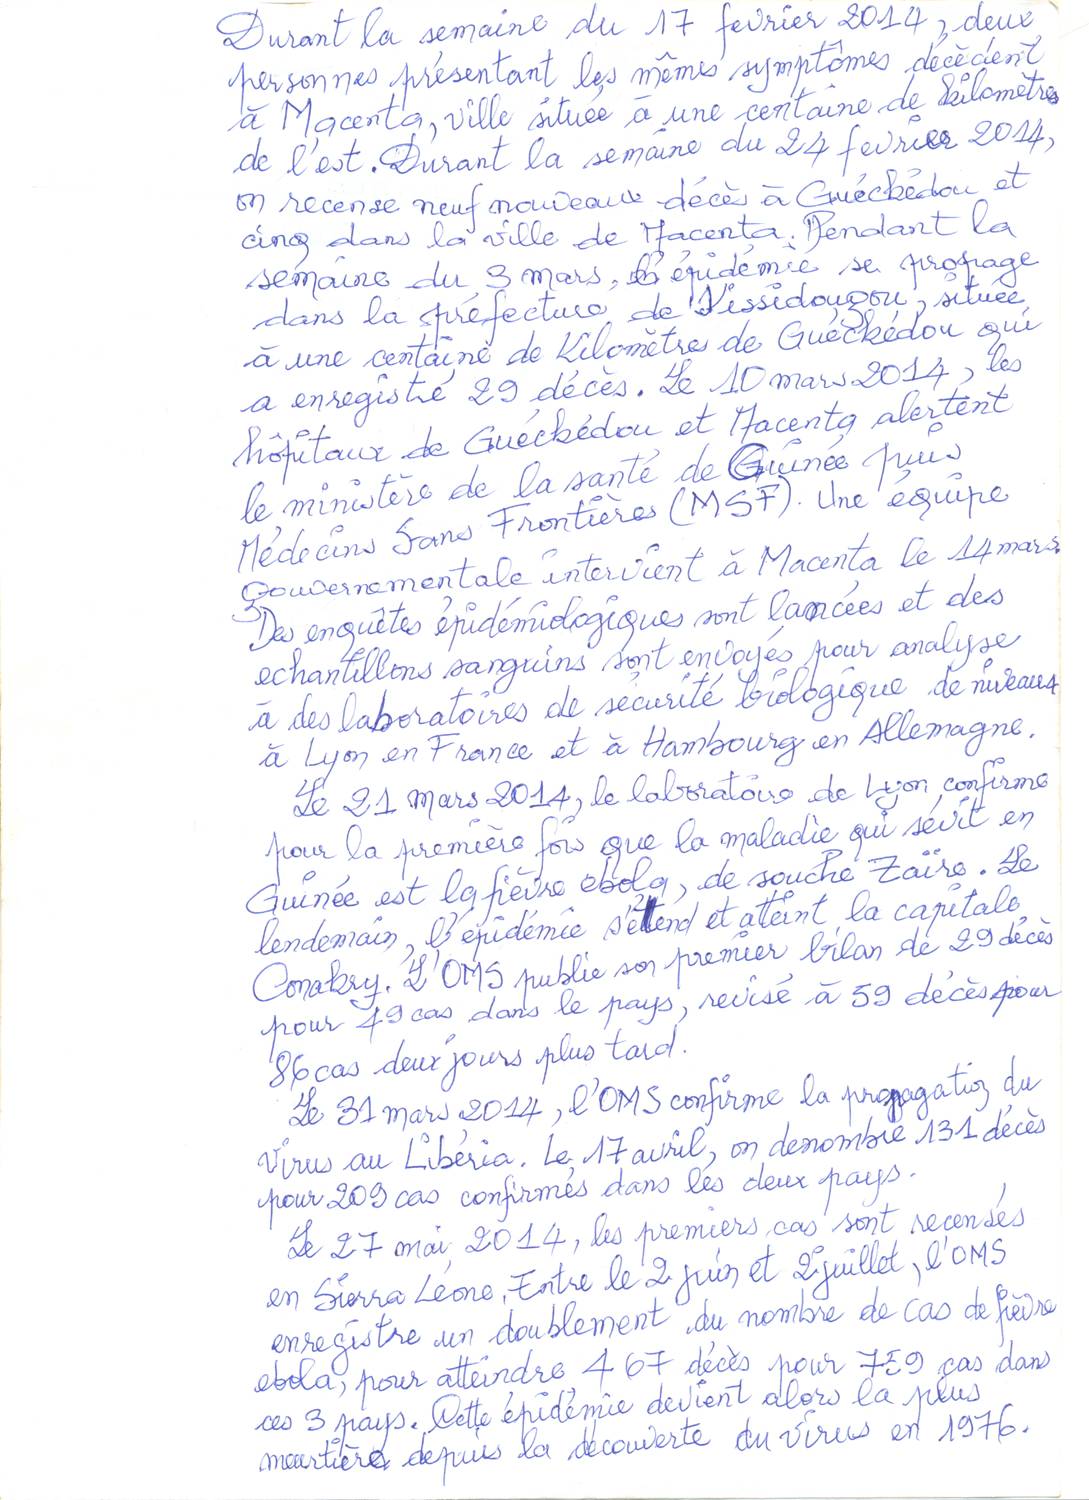 Durant la semaine du 17 fevrier 2014, deux
personnes présentant les mêmes symptômes décèdent
à Macenta, ville située à une centaine de kilomètres
de l'est. Durant la semaine du 24 fevrier 2014,
on recense neuf nouveaux décès à Guéckédou et
cinq dans la ville de Macenta. Pendant la
semaine du 3 mars, l'épidémie se propage
dans la préfecture de Kissidougou, située
à une centaine de kilomètres de Guéckédou qui
a enregistré 29 décès. Le 10 mars 2014, les
hôpitaux de Guéckédou et Macenta alertent
le ministère de la santé de Guinée puis
Médecins Sans Frontières (MSF). Une équipe
gouvernementale intervient à Macenta le 14 mars.
Des enquêtes épidémiologiques sont lancées et des
echantillons sanguins sont envoyés pour analyse
à des laboratoires de sécurité biologique de niveau 4
à Lyon en France et à Hambourg en Allemagne.
Le 21 mars 2014, le laboratoire de Lyon confirme
pour la première fois que la maladie qui sévit en
Guinée est la fièvre ebola, de souche Zaïre. Le
lendemain, l'épidémie s'étend et atteint la capitale
Conakry. L'OMS publie son premier bilan de 29 décès
pour 49 cas dans le pays, revisé à 59 décès pour
86 cas deux jours plus tard.
Le 31 mars 2014, l'OMS confirme la propagation du
virus au Libéria. Le 17 avril, on denombre 131 décès
pour 209 cas confirmés dans les deux pays.
Le 27 mai 2014, les premiers cas sont recensés
en Sierra Léone. Entre le 2 juin et 2 juillet, l'OMS
enregistre un doublement du nombre de cas de fièvre
ebola, pour atteindre 467 décès pour 759 cas dans
ces 3 pays. Cette épidémie devient alors la plus
meurtière depuis la découverte du virus en 1976.